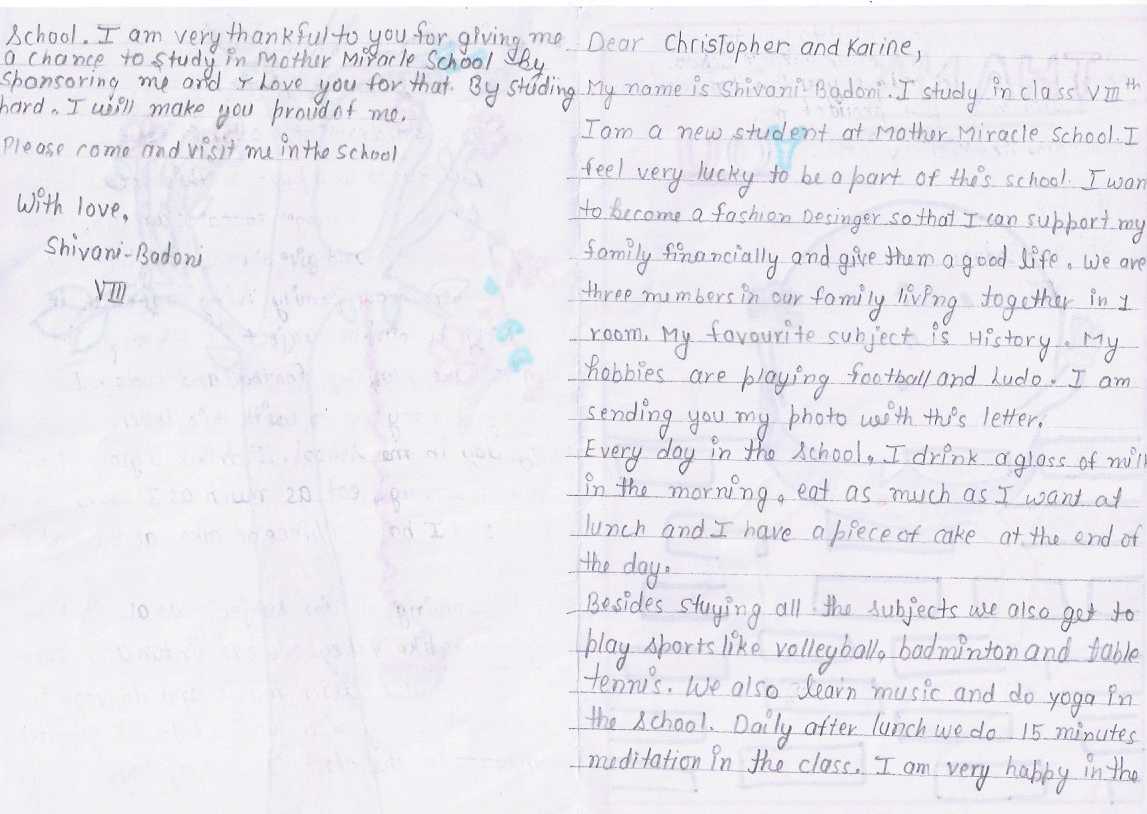 Dear Christopher and Karine,
My name is Shivani-Badoni. I study in class VIIIth
I am a new student at Mother Miracle School. I
feel very lucky to be a part of this school. I wan
to become a fashion Desinger so that I can support my
family financially and give them a good life. We are
three members in our family living together in 1
room. My favourite subject is History. My
hobbies are playing football and Ludo. I am
sending you my photo with this letter.
Every day in the School, I drink a glass of mil
in the morning, eat as much as I want at
lunch and I have a piece of cake at the end of
the day.
Besides stuying all the subjects we also get to
play sports like volleyball, badminton and table
tennis. We also learn music and do yoga in
the School. Daily after lunch we do 15 minutes
meditation in the class. I am very happy in the
School. I am very thankful to you for giving me
a chance to study in Mother Miracle School by
sponsoring me and I Love you for that. By studing
hard. I will make you proud of me.
Please come and visit me in the school
With love,
Shivani-Badoni
VIII